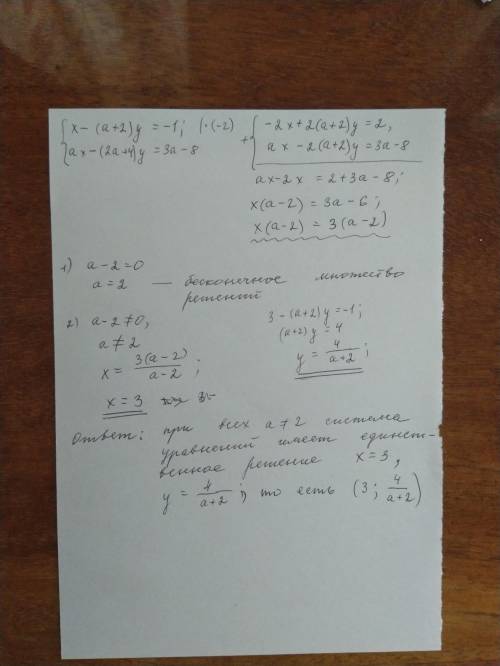 x - (a+2)y = -1; |·(-2)
ax - (2a+4)y = 3a - 8
+ -2x + 2(a+2)y = 2,
ax - 2(a+2)y = 3a - 8
ax - 2x = 2 + 3a - 8;
x(a-2) = 3a - 6;
x(a-2) = 3(a-2)
1) a - 2 = 0
a = 2 — бесконечное множество
решений
2) a - 2 ≠ 0,
a ≠ 2
x = 3(a-2)/(a-2);
x = 3
3 - (a+2)y = -1;
(a+2)y = 4
y = 4/(a+2);
Ответ: при всех a ≠ 2 система
уравнений имеет единст-
венное решение x = 3,
y = 4/(a+2), то есть (3; 4/(a+2))